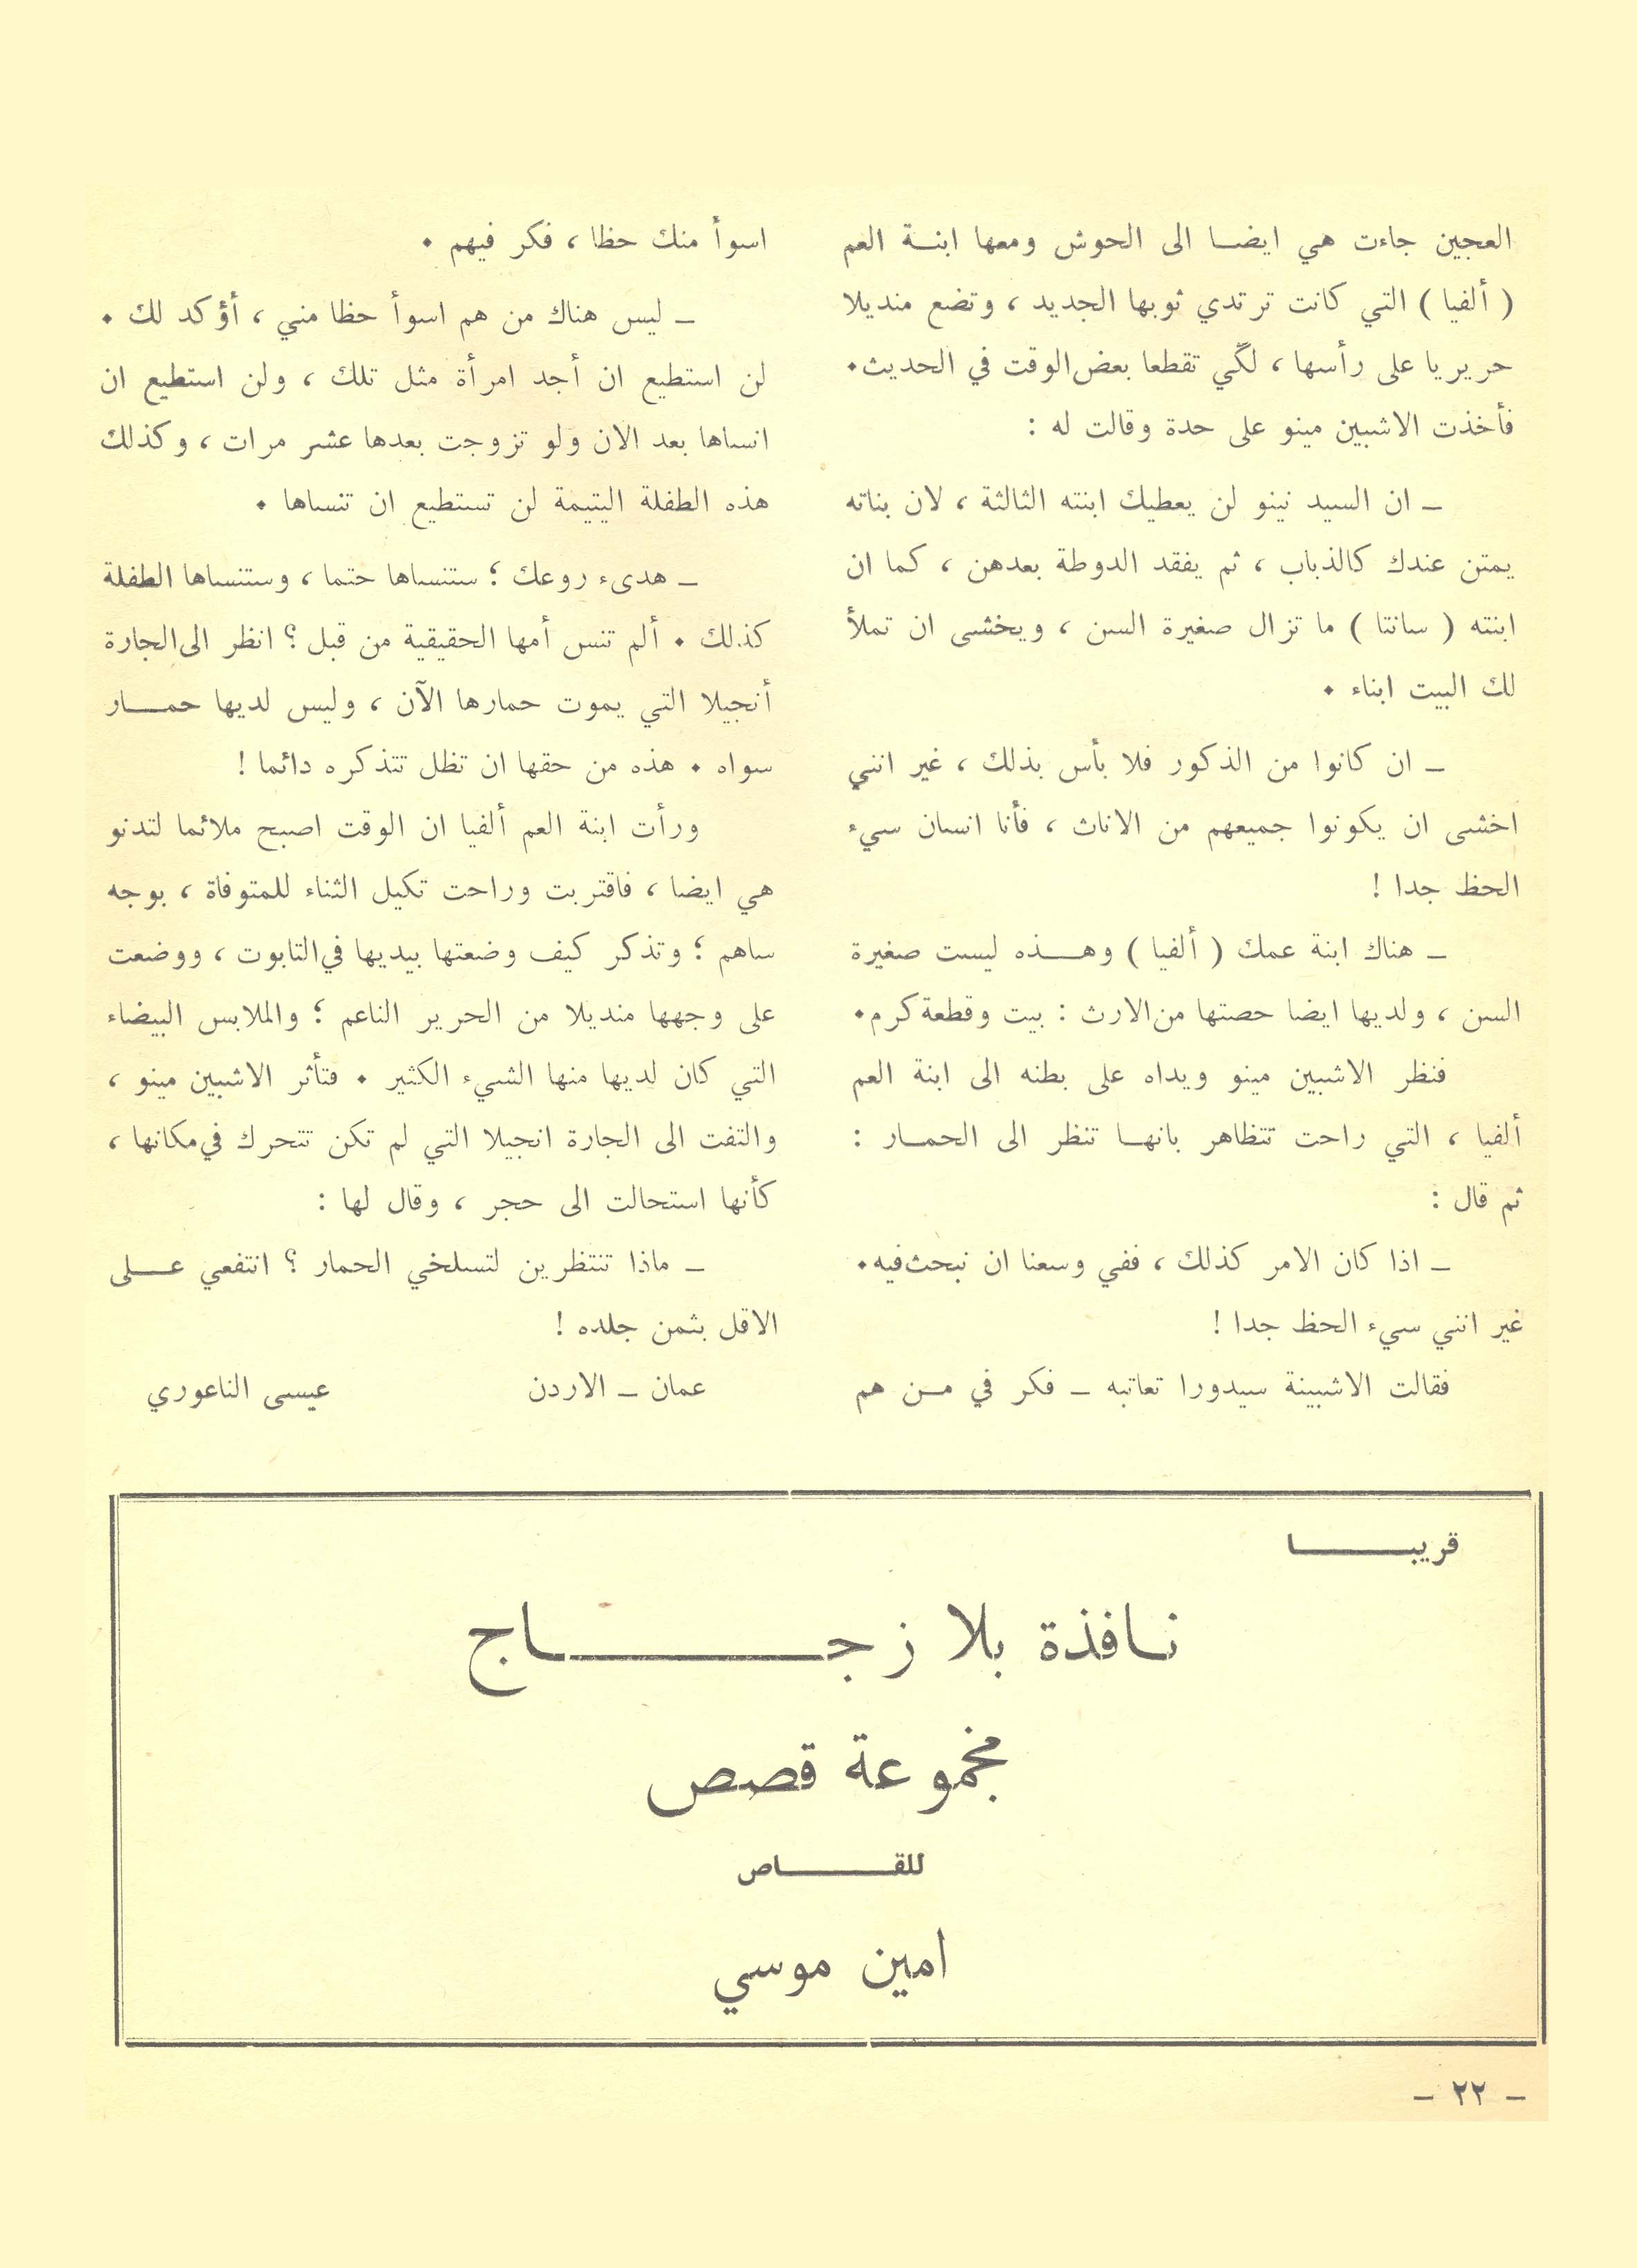 العجين جاءت هي ايضا الى الحوش ومعها ابنة العم
( ألفيا ) التي كانت ترتدي ثوبها الجديد ، وتضع منديلا
حريريا على رأسها ، لكي تقطعا بعض الوقت في الحديث٠
فأخذت الاشبين مينو على حدة وقالت له :
ـ ان السيد نينو لن يعطيك ابنته الثالثة ، لان بناته
يمتن عندك كالذباب ، ثم يفقد الدوطة بعدهن ، كما ان
ابنته ( سانتا ) ما تزال صغيرة السن ، ويخشى ان تملأ
لك البيت ابناء ٠
ـ ان كانوا من الذكور فلا بأس بذلك ، غير انني
اخشى ان يكونوا جميعهم من الاناث ، فأنا انسان سيء
الحظ جدا !
ـ هناك ابنة عمك ( ألفيا ) وهـــذه ليست صغيرة
السن ، ولديها ايضا حصتها من الارث : بيت وقطعة كرم٠
فنظر الاشبين مينو ويداه على بطنه الى ابنة العم
ألفيا ، التي راحت تتظاهر بانهـا تنظر الى الحمـار :
ثم قال :
ـ اذا كان الامر كذلك ، ففي وسعنا ان نبحث فيه٠
غير انني سيء الحظ جدا !
فقالت الاشبينة سيدورا تعاتبه ـ فكر في مـن هم
اسوأ منك حظا ، فكر فيهم ٠
ـ ليس هناك من هم اسوأ حظا مني ، أؤكد لك ٠
لن استطيع ان أجد امرأة مثل تلك ، ولن استطيع ان
انساها بعد الان ولو تزوجت بعدها عشر مرات ، وكذلك
هذه الطفلة اليتيمة لن تستطيع ان تنساها ٠
ـ هدىء روعك ؛ ستنساها حتما ، وستنساها الطفلة
كذلك ٠ ألم تنس أمها الحقيقية من قبل ؟ انظر الى الجارة
أنجيلا التي يموت حمارها الآن ، وليس لديها حمـــار
سواه ٠ هذه من حقها ان تظل تتذكره دائما !
ورأت ابنة العم ألفيا ان الوقت اصبح ملائما لتدنو
هي ايضا ، فاقتربت وراحت تكيل الثناء للمتوفاة ، بوجه
ساهم ؛ وتذكر كيف وضعتها بيديها في التابوت ، ووضعت
على وجهها منديلا من الحرير الناعم ؛ والملابس البيضاء
التي كان لديها منها الشيء الكثير ٠ فتأثر الاشبين مينو ،
والتفت الى الجارة انجيلا التي لم تكن تتحرك في مكانها ،
كأنها استحالت الى حجر ، وقال لها :
ـ ماذا تنتظرين لتسلخي الحمار ؟ انتفعي عـــلى
الاقل بثمن جلده !
عمان ـ الاردن    عيسى الناعوري
قريبـــــا
نـافذة بلا زجــــــاج
مجموعة قصص
للقـــــاص
امين موسي
ـ ٢٢ ـ